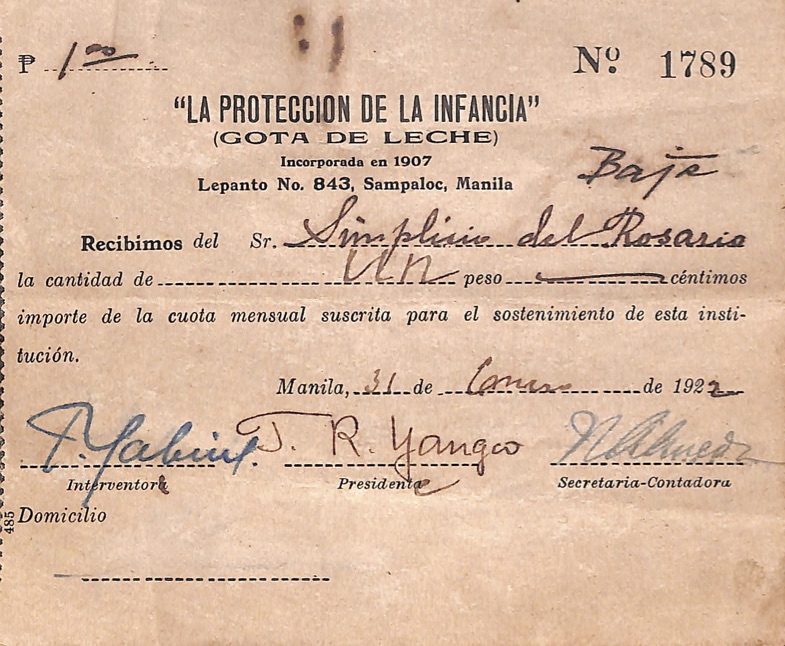 ₱ 1.00
Nº 1789
"LA PROTECCION DE LA INFANCIA"
(GOTA DE LECHE)
Incorporada en 1907
Lepanto No. 843, Sampaloc, Manila
Baja
Recibimos del Sr. Simplicio del Rosario
la cantidad de un peso céntimos
importe de la cuota mensual suscrita para el sostenimiento de esta insti-
tución.
Manila, 31 de Enero de 1922
T. R. Yangco
Interventora Presidenta Secretaria-Contadora
Domicilio
485